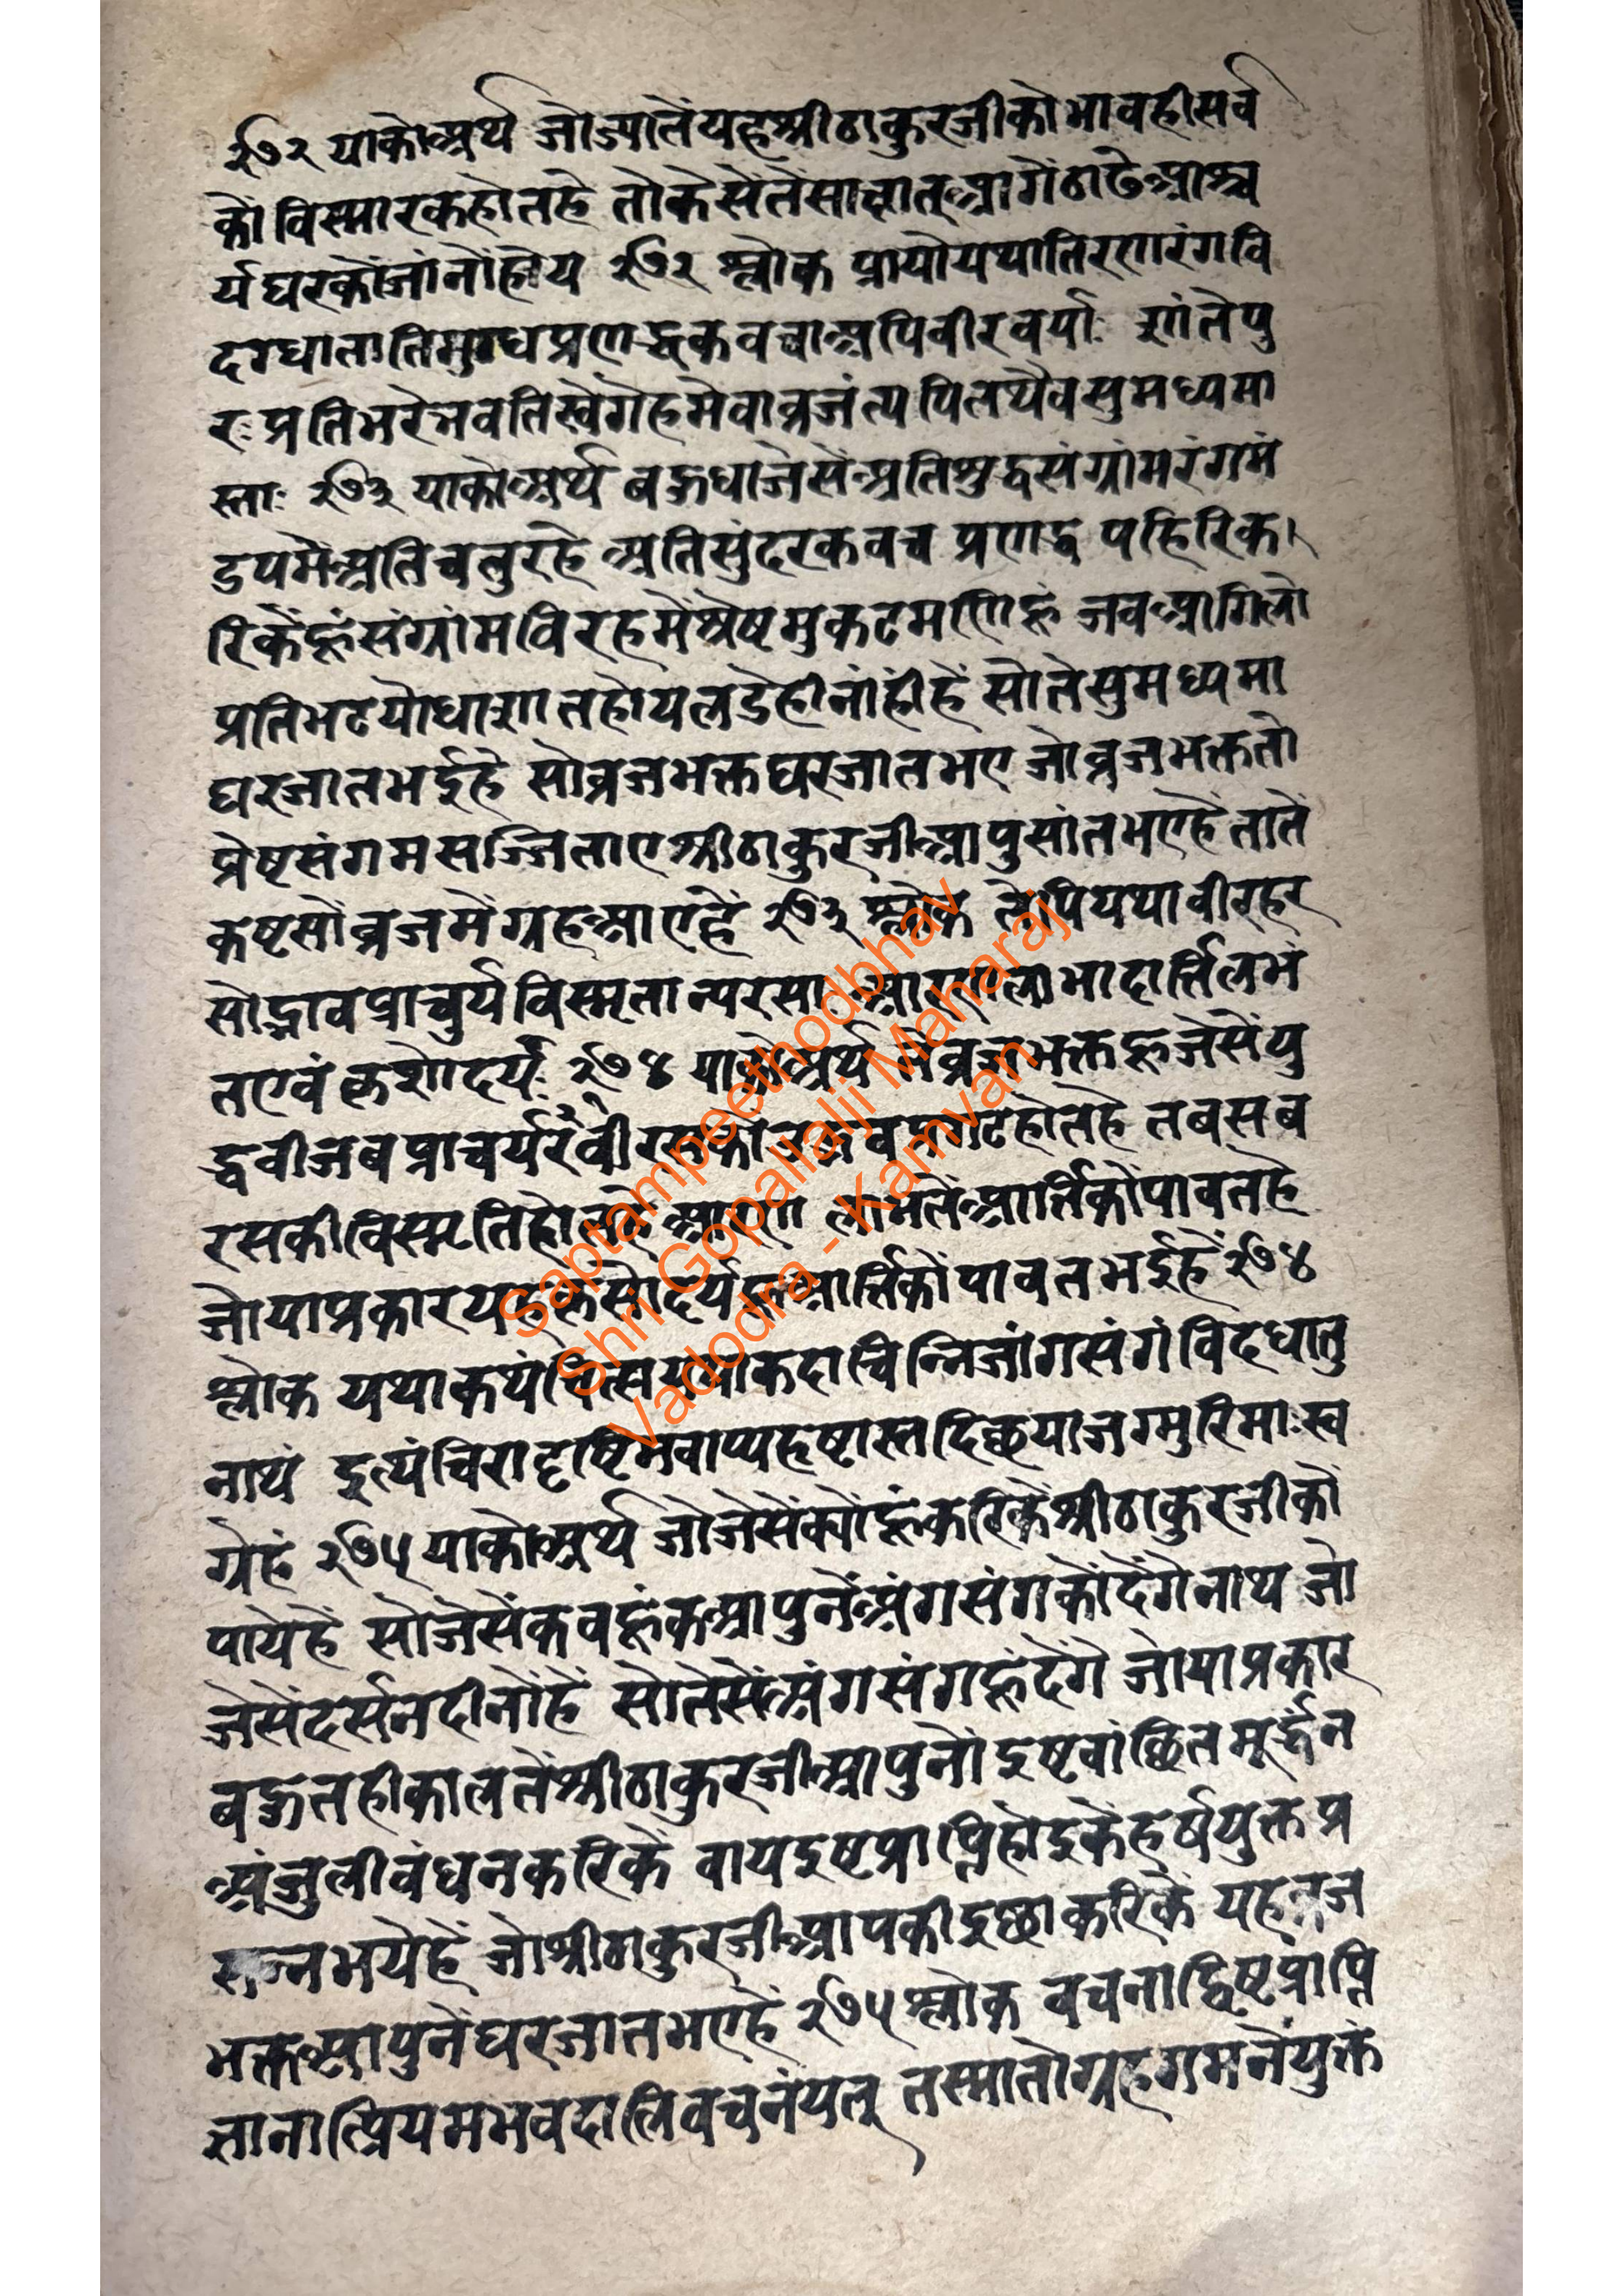 २७२ याकोअर्थ जोज्यातेंयहश्रीठाकुरजीकोभावहीसर्व
कों विस्मारकहोतहे तोकेसेंतेंसाक्षात्आगेंठाढेआश्च
र्यघरकोंजांनोंहोय २७२ श्लोक प्रायोययातिरणरंगवि
दग्घाताति प्रणद्धकवचाअपिवीरवर्याः शांतेपु
रःप्रतिभटेभवतिस्वगेहमेवाव्रजंत्यपितथैवसुमध्यमा
स्ताः २७३ याकोअर्थ बहुधाजेसेंअतिशुद्धसंग्रांमरंगमं
डपमेंअतिचतुरहे अतिसुंदरकवच प्रणद्ध पहिरिक
रिकेंहूंसंग्रांमविरहमेंश्रेष्टमुकटमणिहूं जबआगिलो
प्रतिभटयोधाशांतहोयलडेहीनांहींहें सोतेसुमध्यमा
घरजातभईहे सोव्रजभक्तघरजातभए जोव्रजभक्ततो
प्रेष्टसंगमसज्जिताएश्रीठाकुरजीआपुसांतभएहेंतातें
कष्टसोंव्रजमेंग्रहआएहें २७३ श्लोक तेपियथावीरहर
सोद्भावप्राचुर्यविस्मृतान्यरसाः लाभादार्त्तिलभं
तएवंकृशोदर्यः २७४ याकोअर्थ व्रजभक्तहूजेसेंयु
द्धवीजबप्राचर्यरंवीरसको होतेहे तबसब
रसकीविस्मृतिहोतहे लाभतेंआर्तिकोंपावतहे
जोयाप्रकारयह आर्त्तिकोंपावतभईहें२७४
श्लोक यथाकथंचित्स कदाचिन्निजांगसंगंविदधातु
नाथं इत्यंचिरादृष्टिमवाप्यहृष्टास्तदिच्छयाजग्मुरिमाःस्व
गेहं २७५ याकोअर्थ जोजेसेंक्योंहूंकरिकेंश्रीठाकुरजीकों
पायेहें सोजेसेंकवहूंकआपुनेंअंगसंगकोंदेंगेनाथ जो
जेसेंदर्सनदीनोंहें सोतेसेंअंगसंगहूंदेंगे जोयाप्रकार
बहुतहीकालतेंश्रीठाकुरजीआपुनोंइष्टवांछितमूर्द्धन
अंजुलीबंधनकरिकें वायइष्टप्राप्तिहोइकेंहर्षयुक्तप्र
सन्नभयेहें जोश्रीठाकुरजीआपकीइछाकरिकें यहव्रज
भक्तआपुनेंघरजातभएहें २७५श्लोक वचनाद्विष्टप्राप्ति
त्प्रियमभवदालिवचनंयत् तस्मातोग्रहगमनंयुक्तं
Saptampeethodbhav
Shri Gopallalji Maharaj
Vadodra - Kamvan